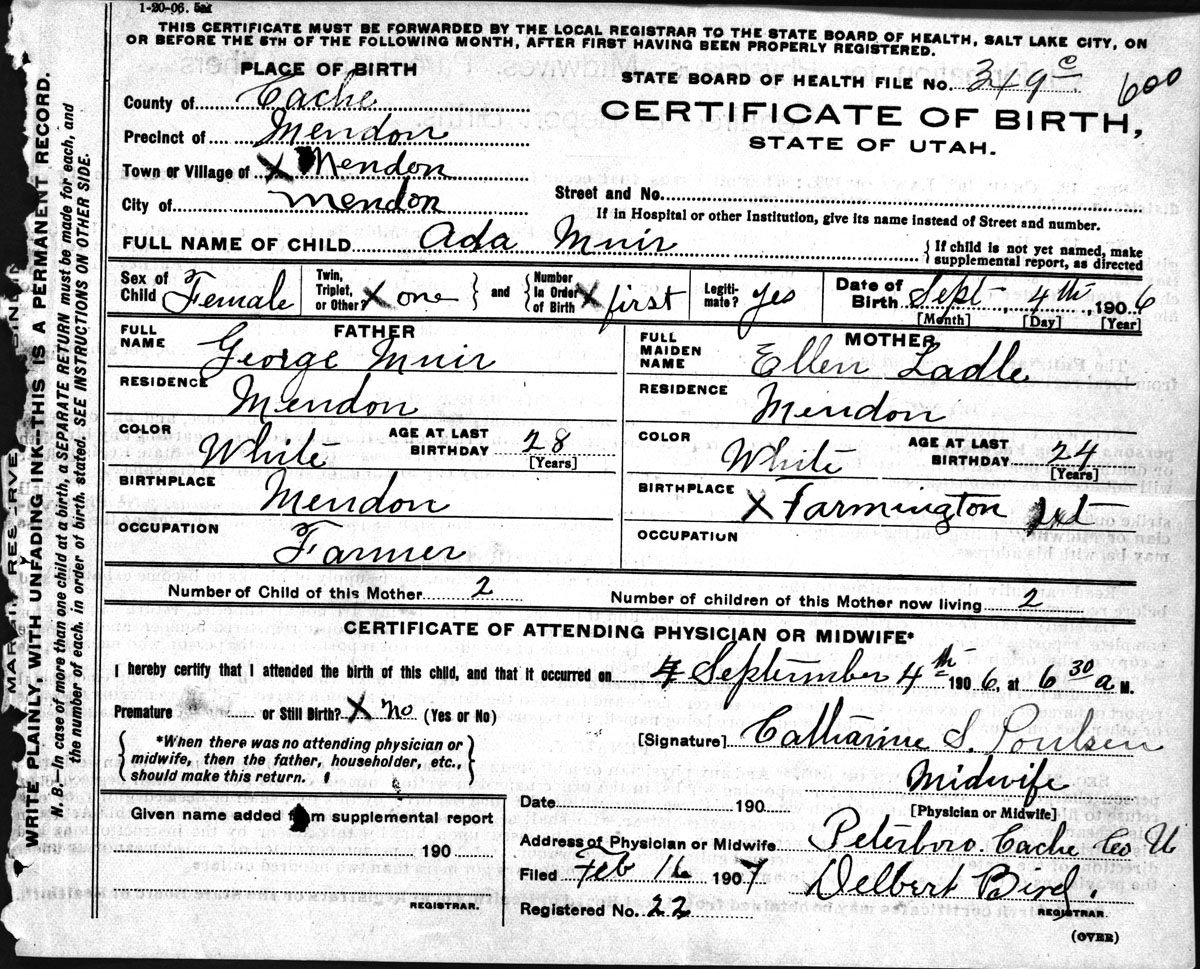 1-20-06. 5M
THIS CERTIFICATE MUST BE FORWARDED BY THE LOCAL REGISTRAR TO THE STATE BOARD OF HEALTH, SALT LAKE CITY, ON
OR BEFORE THE 5TH OF THE FOLLOWING MONTH, AFTER FIRST HAVING BEEN PROPERLY REGISTERED.
PLACE OF BIRTH
STATE BOARD OF HEALTH FILE No. 349 c 600
County of Cache
CERTIFICATE OF BIRTH,
Precinct of Mendon
STATE OF UTAH.
Town or Village of X Mendon
City of Mendon
Street and No.
If in Hospital or other Institution, give its name instead of Street and number.
FULL NAME OF CHILD Ada Muir
{ If child is not yet named, make
supplemental report, as directed
Sex of Child Female
Twin, Triplet, or Other? X one
and
{ Number In Order of Birth } X first
Legiti-mate? yes
Date of Birth Sept 4th, 1906
[Month] [Day] [Year]
FATHER
FULL NAME George Muir
RESIDENCE Mendon
COLOR White
AGE AT LAST BIRTHDAY 28
[Years]
BIRTHPLACE Mendon
OCCUPATION Farmer
MOTHER
FULL MAIDEN NAME Ellen Ladle
RESIDENCE Mendon
COLOR White
AGE AT LAST BIRTHDAY 24
[Years]
BIRTHPLACE X Farmington
OCCUPATION
Number of Child of this Mother 2
Number of children of this Mother now living 2
CERTIFICATE OF ATTENDING PHYSICIAN OR MIDWIFE*
I hereby certify that I attended the birth of this child, and that it occurred on September 4th 1906, at 6 30 a M.
Premature or Still Birth? X no (Yes or No)
{ *When there was no attending physician or
midwife, then the father, householder, etc.,
should make this return. }
[Signature] Catharine S. Poulsen
Midwife
[Physician or Midwife]
Date 190
Given name added from supplemental report
190
REGISTRAR.
Address of Physician or Midwife Peterboro Cache Co U
Filed Feb 16 1907 Delbert Bird
Registered No. 22
REGISTRAR.
(OVER)
MARGIN RESERVE
WRITE PLAINLY, WITH UNFADING INK—THIS IS A PERMANENT RECORD.
N. B.—In case of more than one child at a birth, a SEPARATE RETURN must be made for each, and
the number of each, in order of birth, stated. SEE INSTRUCTIONS ON OTHER SIDE.